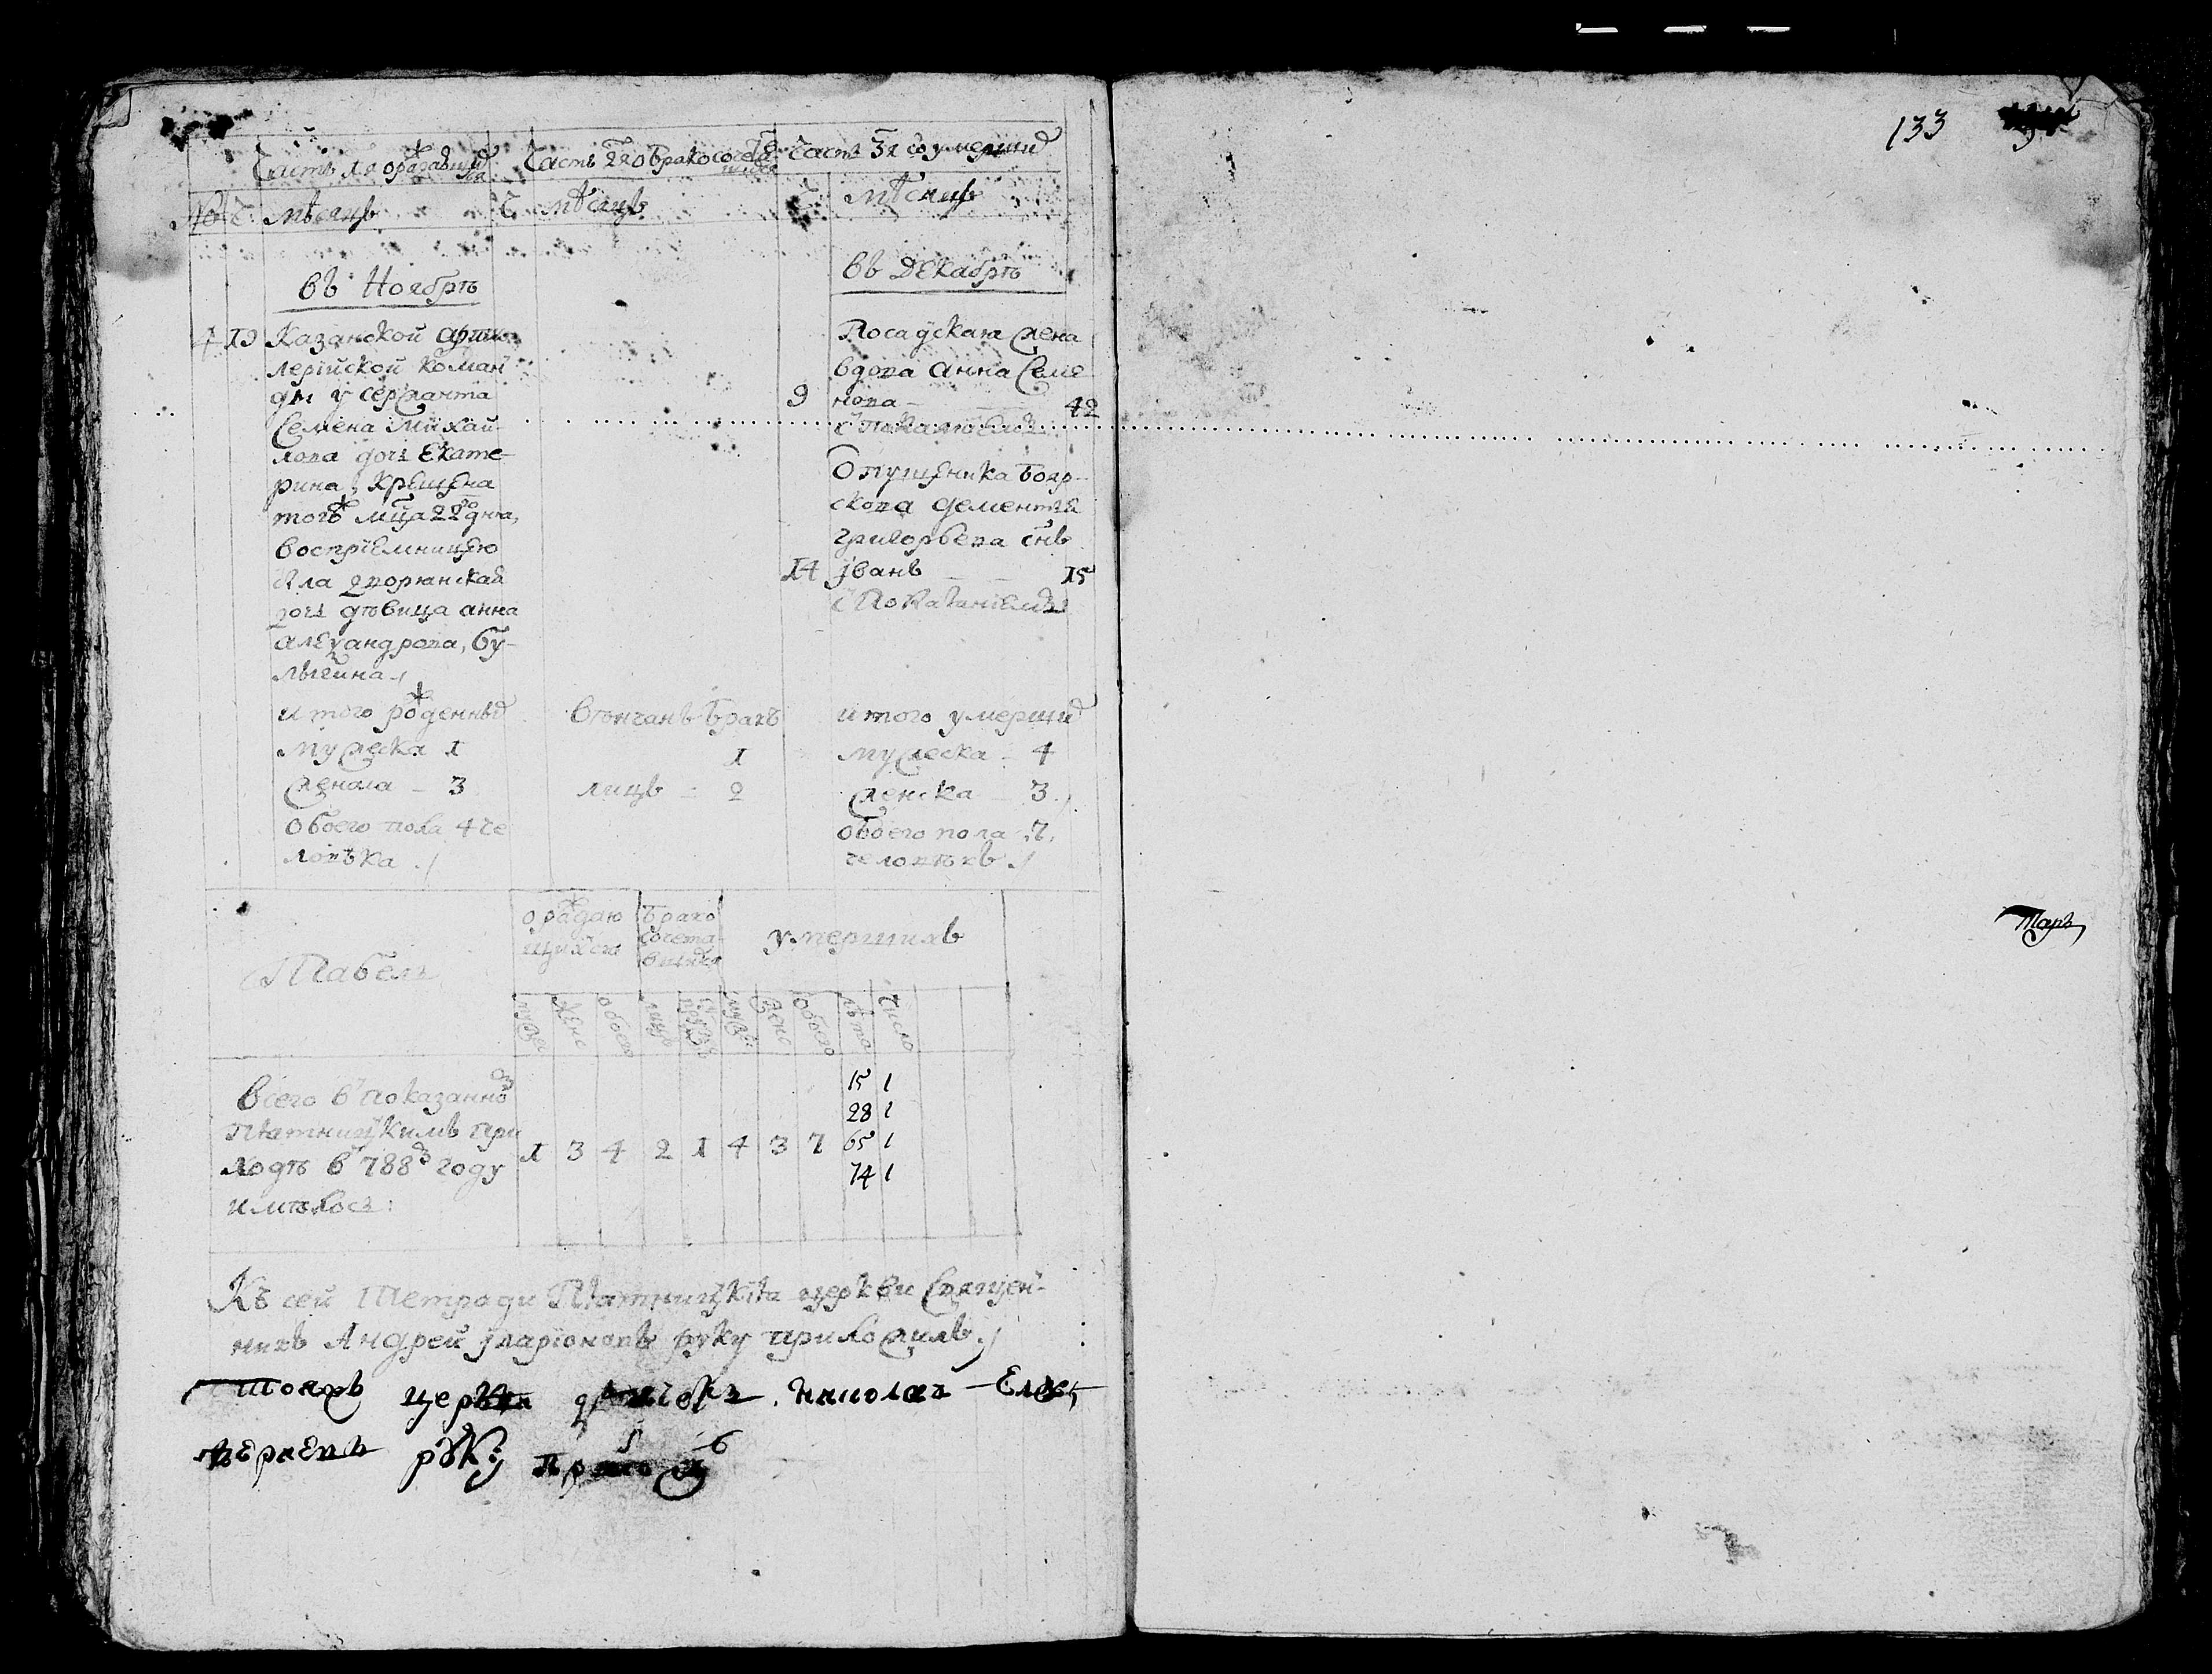 133
Часть 1я о раждающихся
Часть 2я о бракосочетавшихся
Часть 3я о умерших
№ Ч мѣсяцъ
Ч мѣсяцъ
Ч мѣсяцъ
въ Ноябрѣ
4 19 Казанской артил-
лерійской коман
ды у сержанта
Семена Михай-
лова дочь Екате-
рина, крещена
тогѡж мца 22го дня,
воспріемницею
была дворянская
дочь дѣвица анна
александрова, бу-
лыгина ./
въ Декабрѣ
Посадская жена
вдова Анна Семе
9 нова — 42
с покаяніемъ
Отпущеника бояр-
скова дементья
григорьева снъ
14 іванъ — 15
с покаяніемъ
итого рожденныхъ
мужеска 1
женска — 3
обоего пола 4 че
ловѣка ./
вѣнчанъ бракъ
1
лицъ — 2
итого умершихъ
мужеска — 4
женска — 3 ./
обоего пола 7,
человѣкъ ./
Табель
о раждаю
щихся
брако
сочета-
вшихся
умершихъ
мужес
женс
обоего
лицъ
муж
женс
обоего
лѣта
число
Всего в показанном
Пятницкимъ при
ходѣ в 788м году
имѣлось:
1 3 4 2 1 4 3 7
15 1
28 1
65 1
74 1
Къ сей Тетради Пятницкія церкви Священ-
никъ Андрей іларіоновъ руку приложилъ ./
тояжъ церкви дьячокъ николай
руку приложилъ